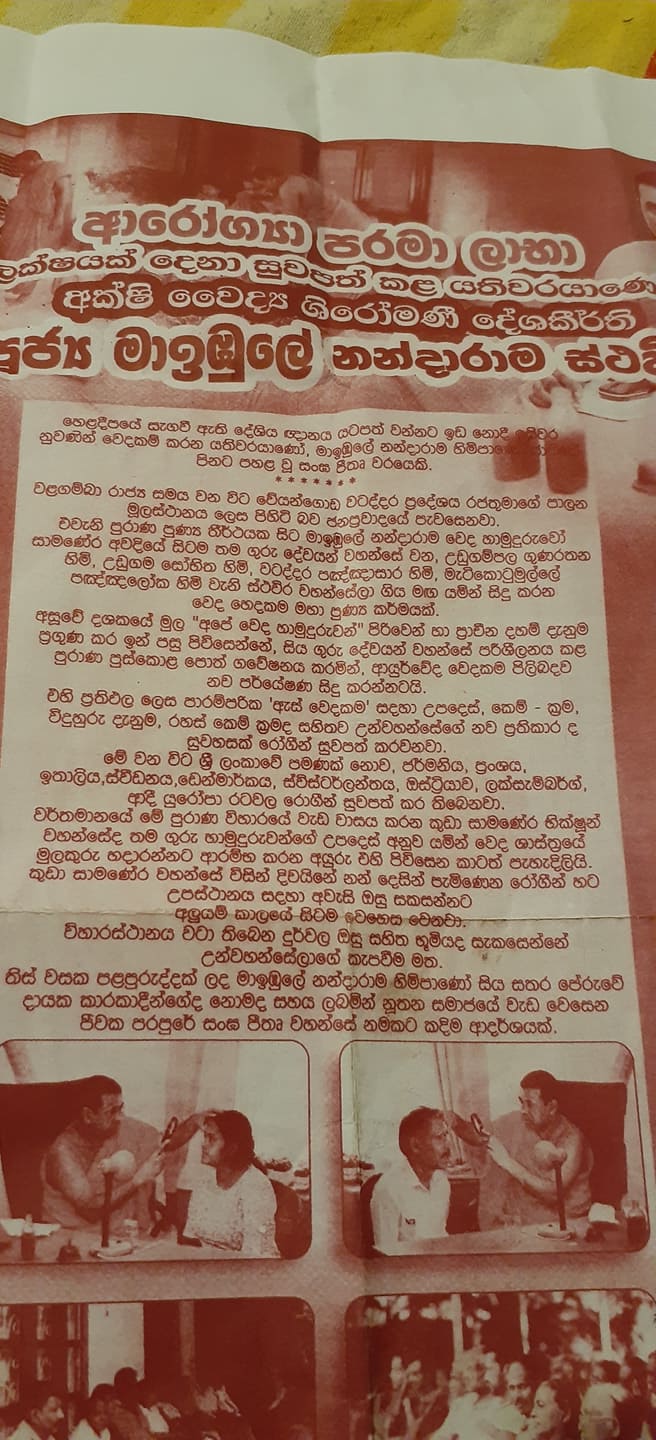 ආරෝග්‍යා පරමා ලාභා
ලක්ෂයක් දෙනා සුවපත් කළ යතිවරයාණෝ
අක්ෂි වෛද්‍ය ශිරෝමණී දේශකීර්ති
පූජ්‍ය මාඉඹුලේ නන්දාරාම
හෙළදිපයේ සැඟවී ඇති දේශිය ඥානය යටපත් වන්නට ඉඩ නොදී
නුවණින් වෙදකම් කරන යතිවරයාණෝ, මාඉඹුලේ නන්දාරාම
පිනට පහළ වූ සංඝ පීතෘ වරයෙකි.
*******
වළගම්බා රාජ්‍ය සමය වන විට වේයන්ගොඩ වටද්දර ප්‍රදේශය රජතුමාගේ පාලන
මූලස්ථානය ලෙස පිහිටි බව ජනප්‍රවාදයේ පැවසෙනවා.
එවැනි පුරාණ පුණ්‍ය තීර්ථයක සිට මාඉඹුලේ නන්දාරාම වෙද හාමුදුරුවෝ
සාමණේර අවදියේ සිටම තම ගුරු දේවයන් වහන්සේ වන, උඩුගම්පල ගුණරතන
හිමි, උඩුගම සෝභිත හිමි, වටද්දර පඤ්ඤාසාර හිමි, මැටිකොටුමුල්ලේ
පඤ්ඤලෝක හිමි වැනි ස්ථවිර වහන්සේලා ගිය මඟ යමින් සිදු කරන
වෙද හෙදකම මහා පුණ්‍ය කර්මයක්.
අසූවේ දශකයේ මුල "අපේ වෙද හාමුදුරුවන්" පිරිවෙන් හා ප්‍රාචීන දහම් දැනුම
ප්‍රගුණ කර ඉන් පසු පිවිසෙන්නේ, සිය ගුරු දේවයන් වහන්සේ පරිශීලනය කළ
පුරාණ පුස්කොළ පොත් ගවේෂනය කරමින්, ආයුර්වේද වෙදකම පිලිබදව
නව පර්යේෂණ සිදු කරන්නටයි.
එහි ප්‍රතිඵල ලෙස පාරම්පරික 'ඇස් වෙදකම' සදහා උපදෙස්, කෙම් - ක්‍රම,
විදුහුරු දැනුම, රහස් කෙම් ක්‍රමද සහිතව උන්වහන්සේගේ නව ප්‍රතිකාර ද
සුවහසක් රෝගීන් සුවපත් කරවනවා.
මේ වන විට ශ්‍රී ලංකාවේ පමණක් නොව, ජර්මනිය, ප්‍රංශය,
ඉතාලිය,ස්වීඩනය,ඩෙන්මාර්කය, ස්විස්ටර්ලන්තය, ඔස්ට්‍රියාව, ලක්සැම්බර්ග්,
ආදී යුරෝපා රටවල රොගීන් සුවපත් කර තිබෙනවා.
වර්තමානයේ මේ පුරාණ විහාරයේ වැඩ වාසය කරන කුඩා සාමණේර භික්ෂූන්
වහන්සේද තම ගුරු හාමුදුරුවන්ගේ උපදෙස් අනුව යමින් වෙද ශාස්ත්‍රයේ
මුලකුරු හදාරන්නට ආරම්භ කරන අයුරු එහි පිවිසෙන කාටත් පැහැදිලියි.
කුඩා සාමණේර වහන්සේ විසින් දිවයිනේ නන් දෙසින් පැමිණෙන රෝගීන් හට
උපස්ථානය සදහා අවැසි ඔසු සකසන්නට
අලුයම් කාලයේ සිටම වෙහෙස වෙනවා.
විහාරස්ථානය වටා තිබෙන දුර්වල ඔසු සහිත භූමියද සැකසෙන්නේ
උන්වහන්සේලාගේ කැපවීම මත.
තිස් වසක පළපුරුද්දක් ලද මාඉඹුලේ නන්දාරාම හිමිපාණෝ සිය සතර පේරුවේ
දායක කාරකාදීන්ගේද නොමද සහය ලබමින් නූතන සමාජයේ වැඩ වෙසෙන
ජීවක පරපුරේ සංඝ පීතෘ වහන්සේ නමකට කදිම ආදර්ශයක්.